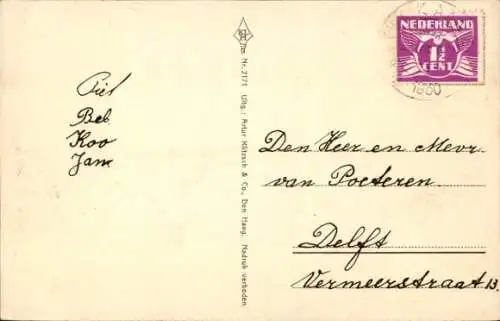 Piet
Beb
Koo
Jan
Nr. 2171 Uitg.: Artur Klitzsch & Co., Den Haag; Nadruk verboden
NEDERLAND
1½
CENT
Den Heer en Mevr.
van Poeteren
Delft
Vermeerstraat 13.